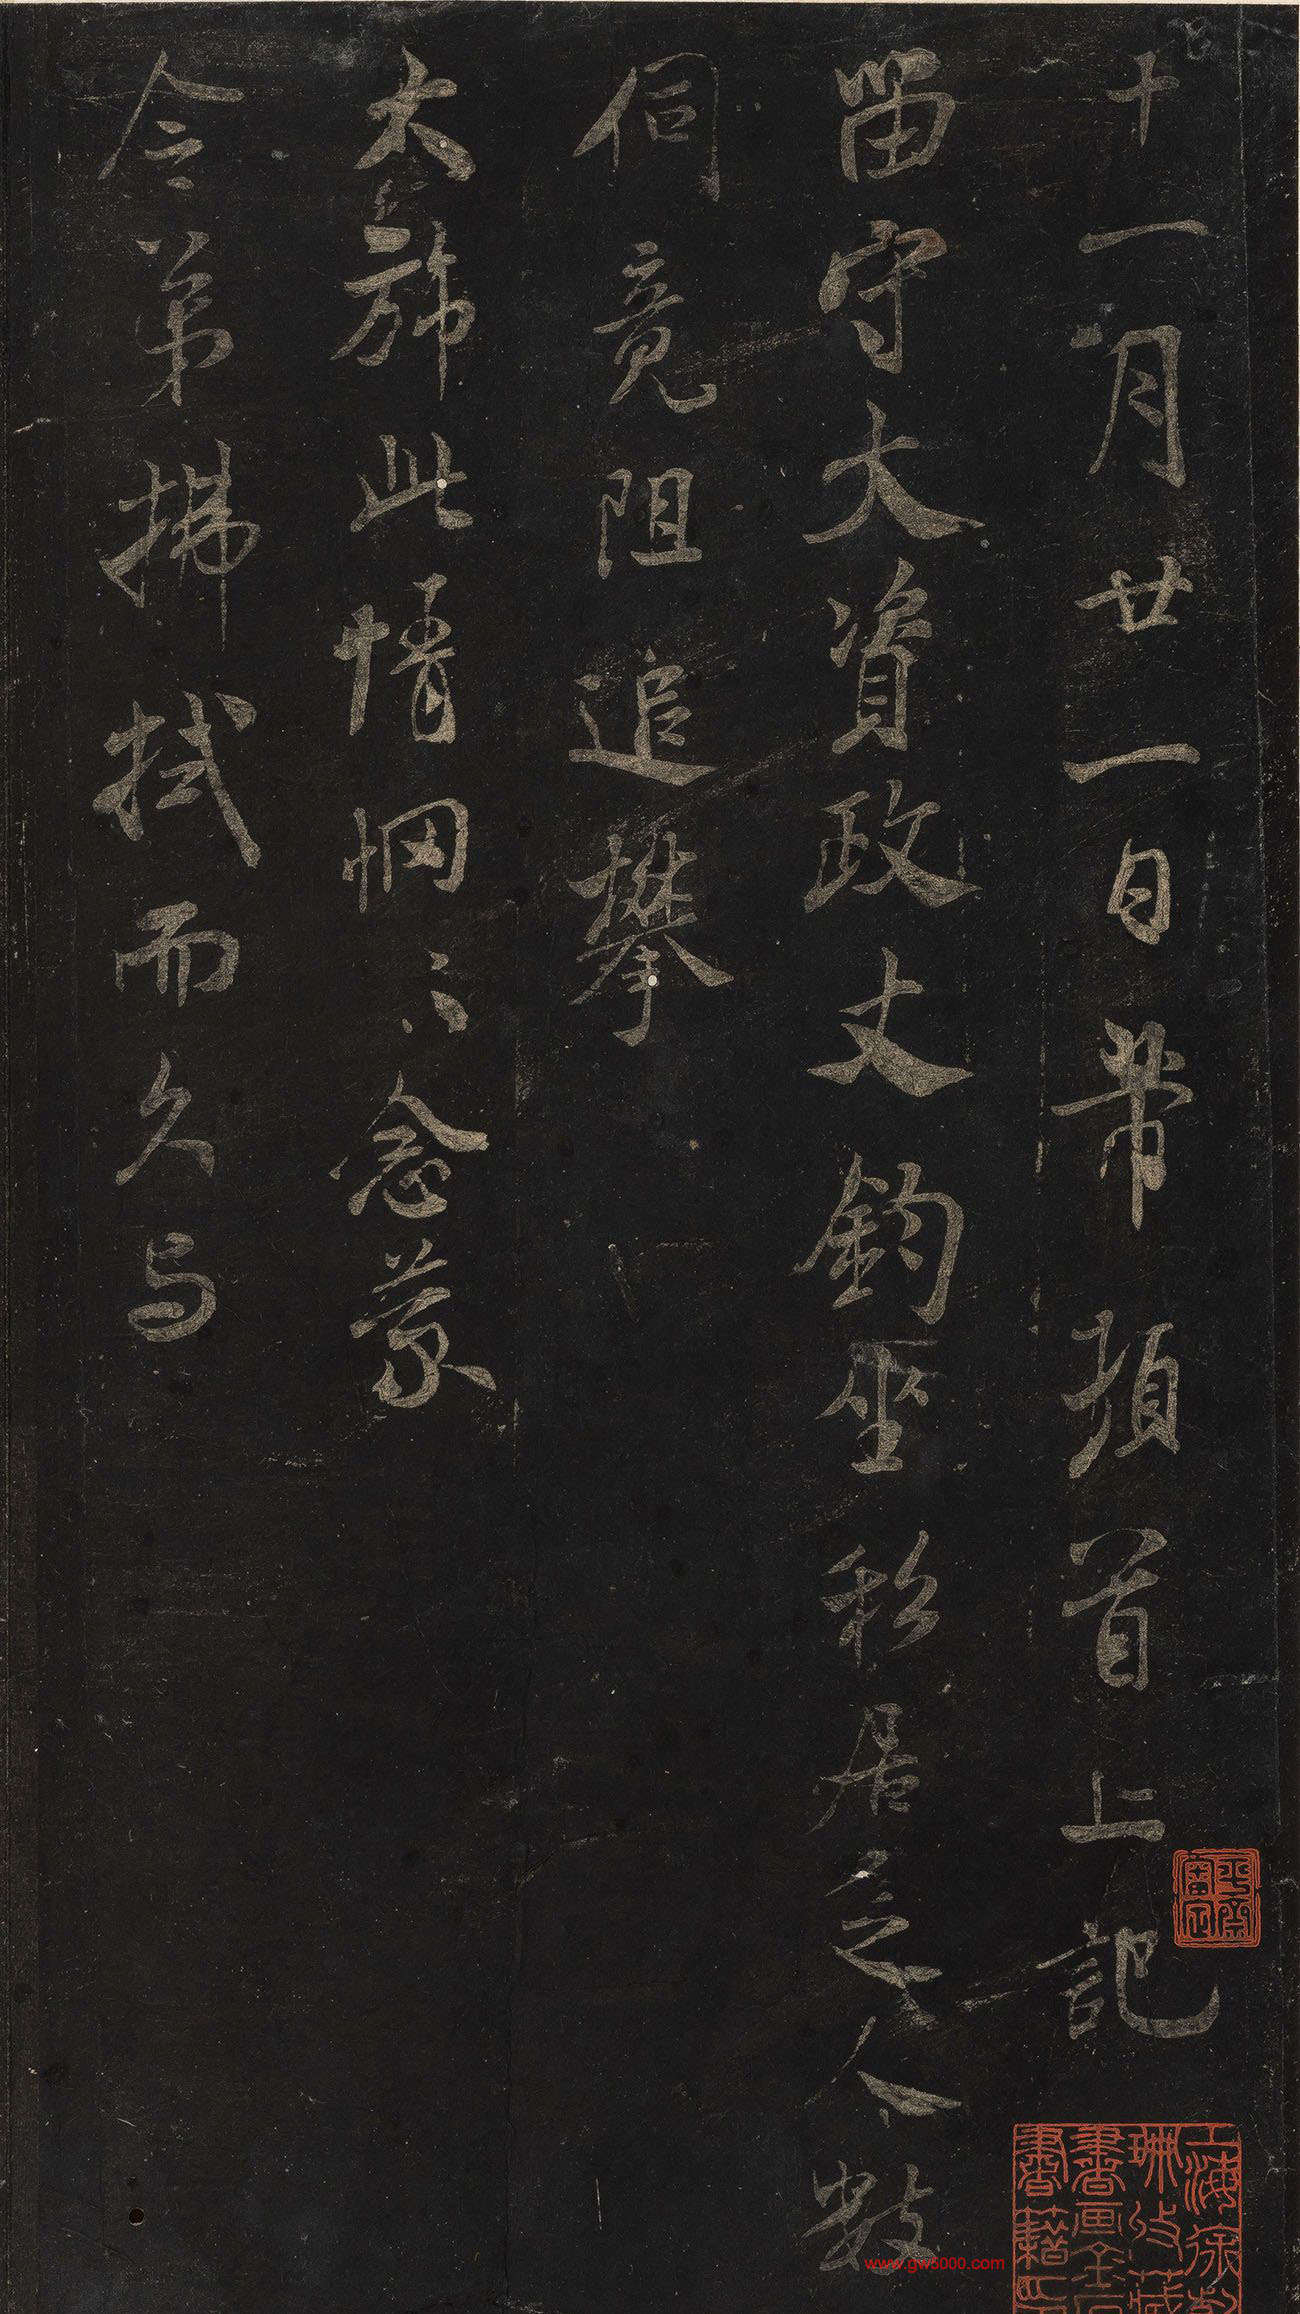 十一月廿一日芾頓首上記
留守大資政丈鈞坐私居乏人數
伺竟阻追攀
大旆此情惘〻念蒙
令弟拂拭而久与
www.gw5000.com